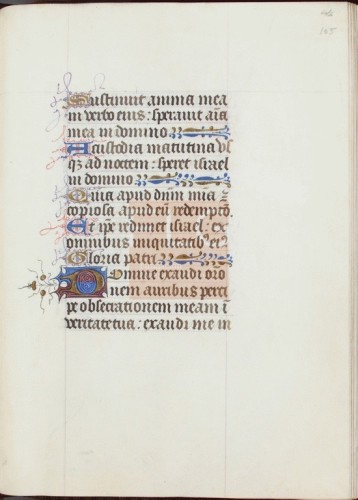 105
Sustinuit anima mea
in verbo eius: speravit aīa
mea in domino
A custodia matutina vs
qꝫ ad noctem: speret israel
in domino
Quia apud dnm mīa ⁊
copiosa apud eū redemptō.
Et ipe redimet israel: ex
omnibus iniquitatibꝰ eiꝰ
Gloria patri
Domine exaudi oro
nem auribus perci
pe obsecrationem meam ī
veritate tua: exaudi me in